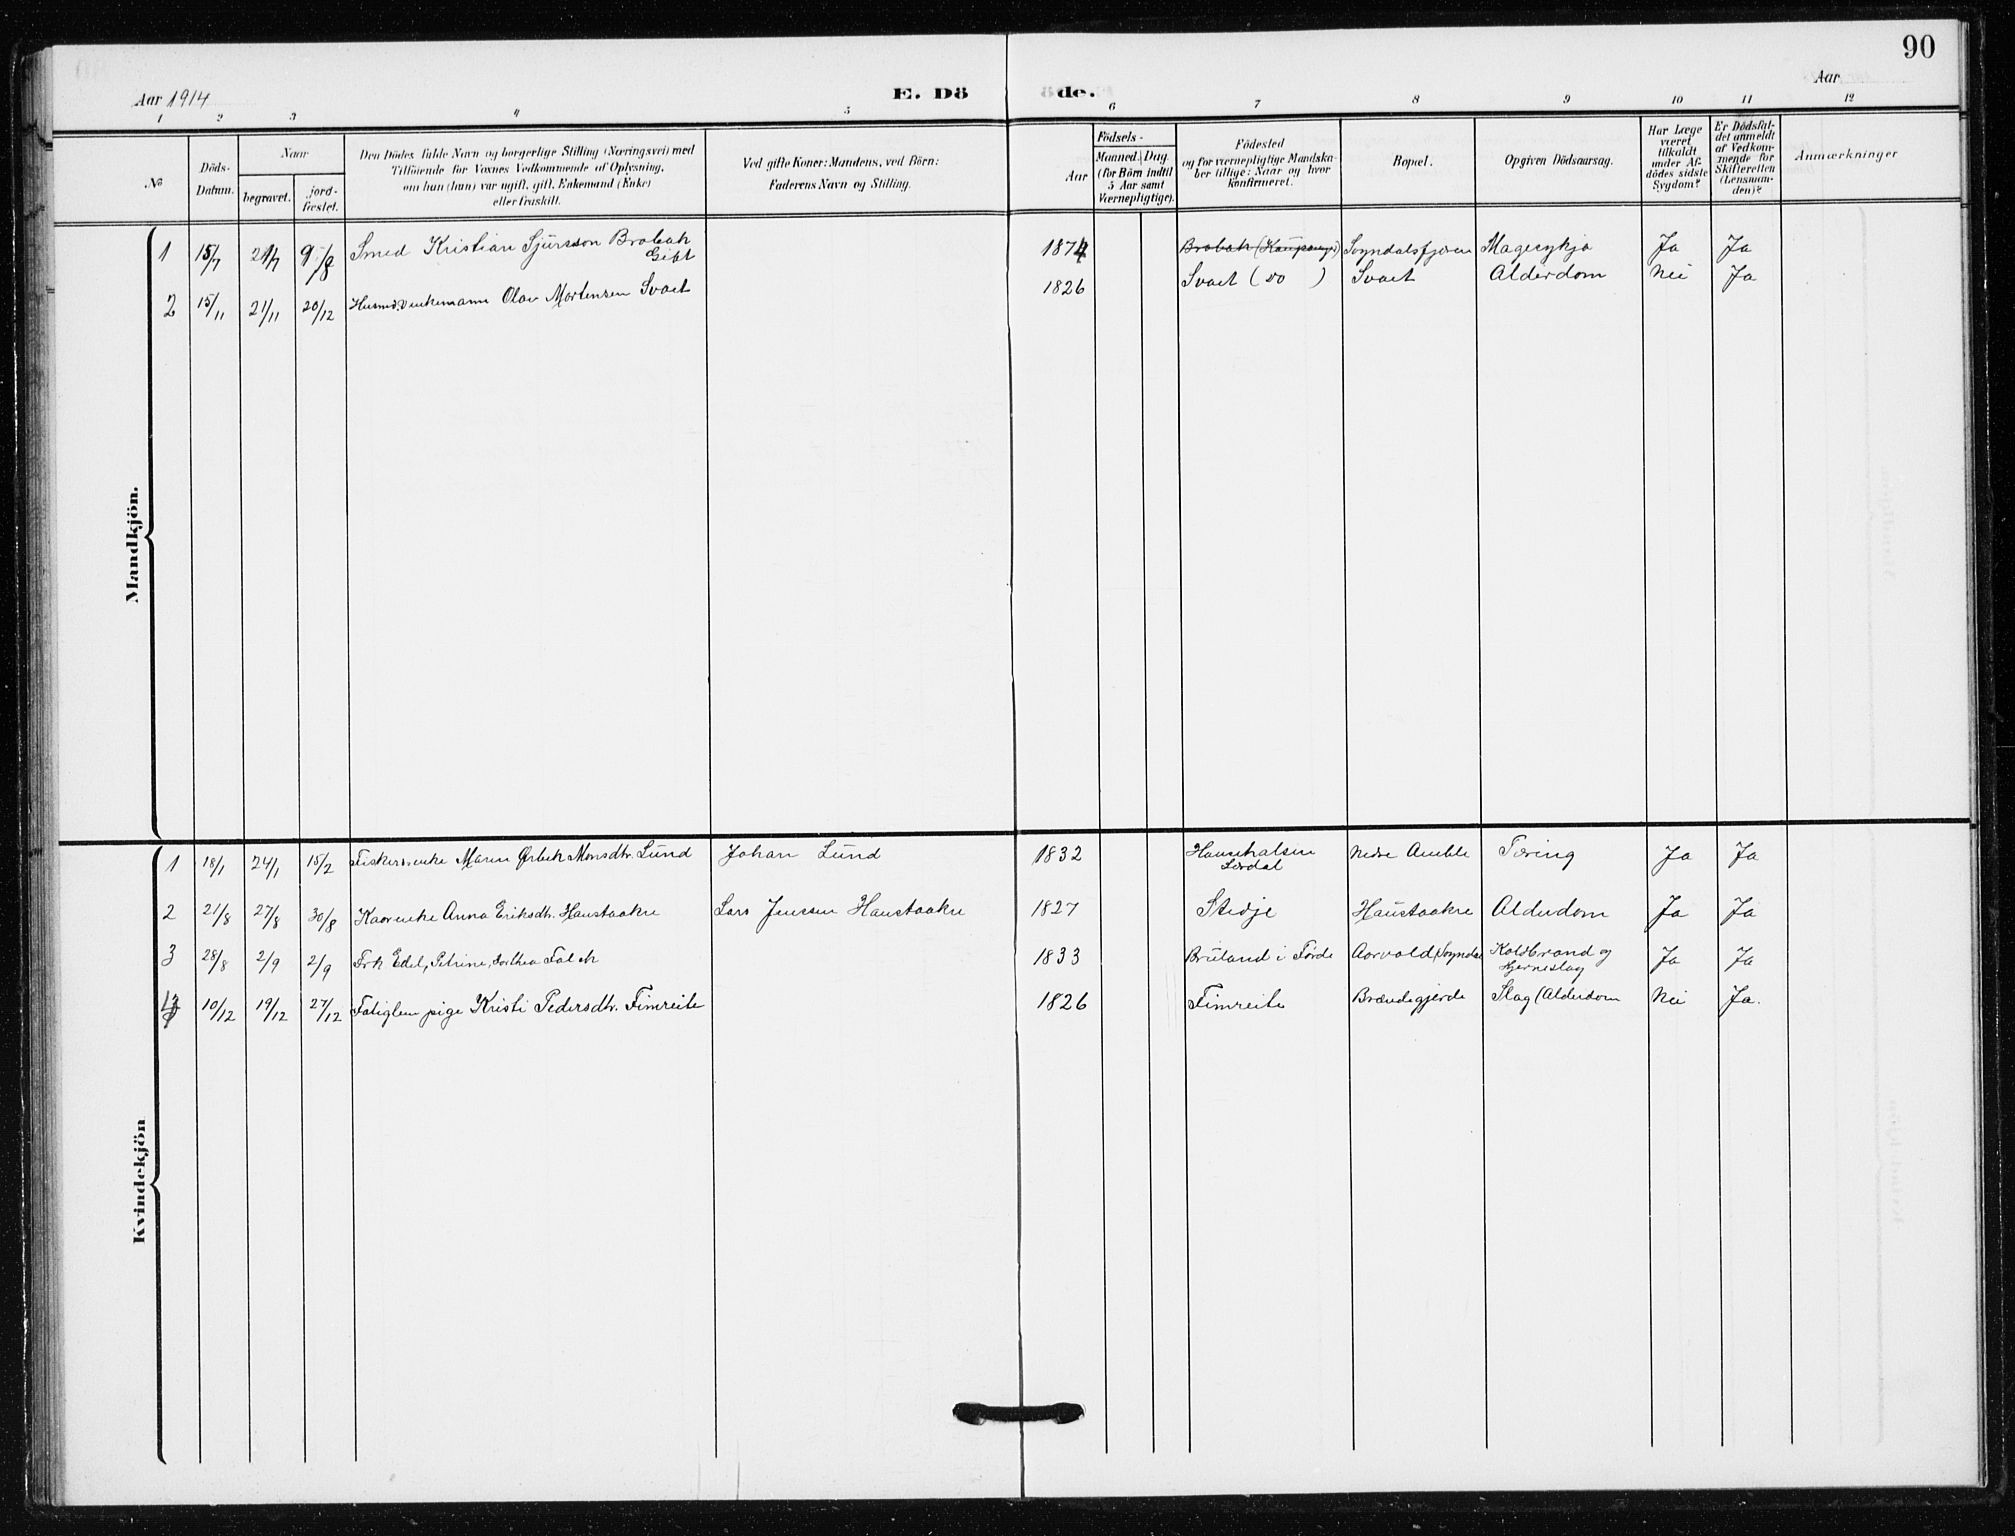 90
Aar 1914
E. Dö
de.
Aar
1 2 3 4 5 6 7 8 9 10 11 12
No
Döds-
Datum.
Naar
begravet.
jord-
fæstet.
Den Dödes fulde Navn og borgerlige Stilling (Næringsvei) med
Tilföiende for Voxnes Vedkommende af Oplysning,
om han (hun) var ugift, gift, Enkemand (Enke)
eller fraskilt.
Ved gifte Koner: Mandens, ved Börn:
Faderens Navn og Stilling.
Aar
Födsels-
Maaned. Dag
(for Börn indtil
5 Aar samt
Værnepligtige).
Födested
og for værnepligtige Mandska-
ber tillige: Naar og hvor
konfirmeret.
Bopæl.
Opgiven Dödsaarsag.
Har Læge
været
tilkaldt
under Af-
dödes sidste
Sygdom?
Er Dödsfal-
det anmeldt
af Vedkom-
mende for
Skifteretten
(Lensman-
den)?
Anmærkninger
Mandkjön.
1 15/7 21/7 9/8 Smed Kristian Sjursson Brobak 1874 Brobak (Kaupanger) Sogndalsfjøren Magesykja Ja Ja
Gift
2 15/11 21/11 20/12 Husmd. enkemann Olav Mortensen Svaet 1826 Svaet (do ) Svaet Alderdom Nei Ja
Kvindekjön
1 18/1 24/1 15/2 Fiskerenke Maren Ørbek Monsdtr. Lund Johan Lund 1832 Hauge Nedre Amble Tæring Ja Ja
Lærdal
2 21/8 27/8 30/8 Kaarenke Anna Eriksdtr. Haustaakre Lars Jenssen Haustaakre 1827 Stedje Haustaakre Alderdom Ja Ja
3 28/8 2/9 2/9 Frk Edel, Petrine, Dorthea Falch 1833 Bruland i Førde Aarvold, Sogndal Koldbrand og Ja Ja
Hjerneslag
4 10/12 19/12 27/12 Fatiglem pige Kristi Pedersdtr. Fimreite 1826 Fimreite Brændegjerde Slag (Alderdom Nei Ja.